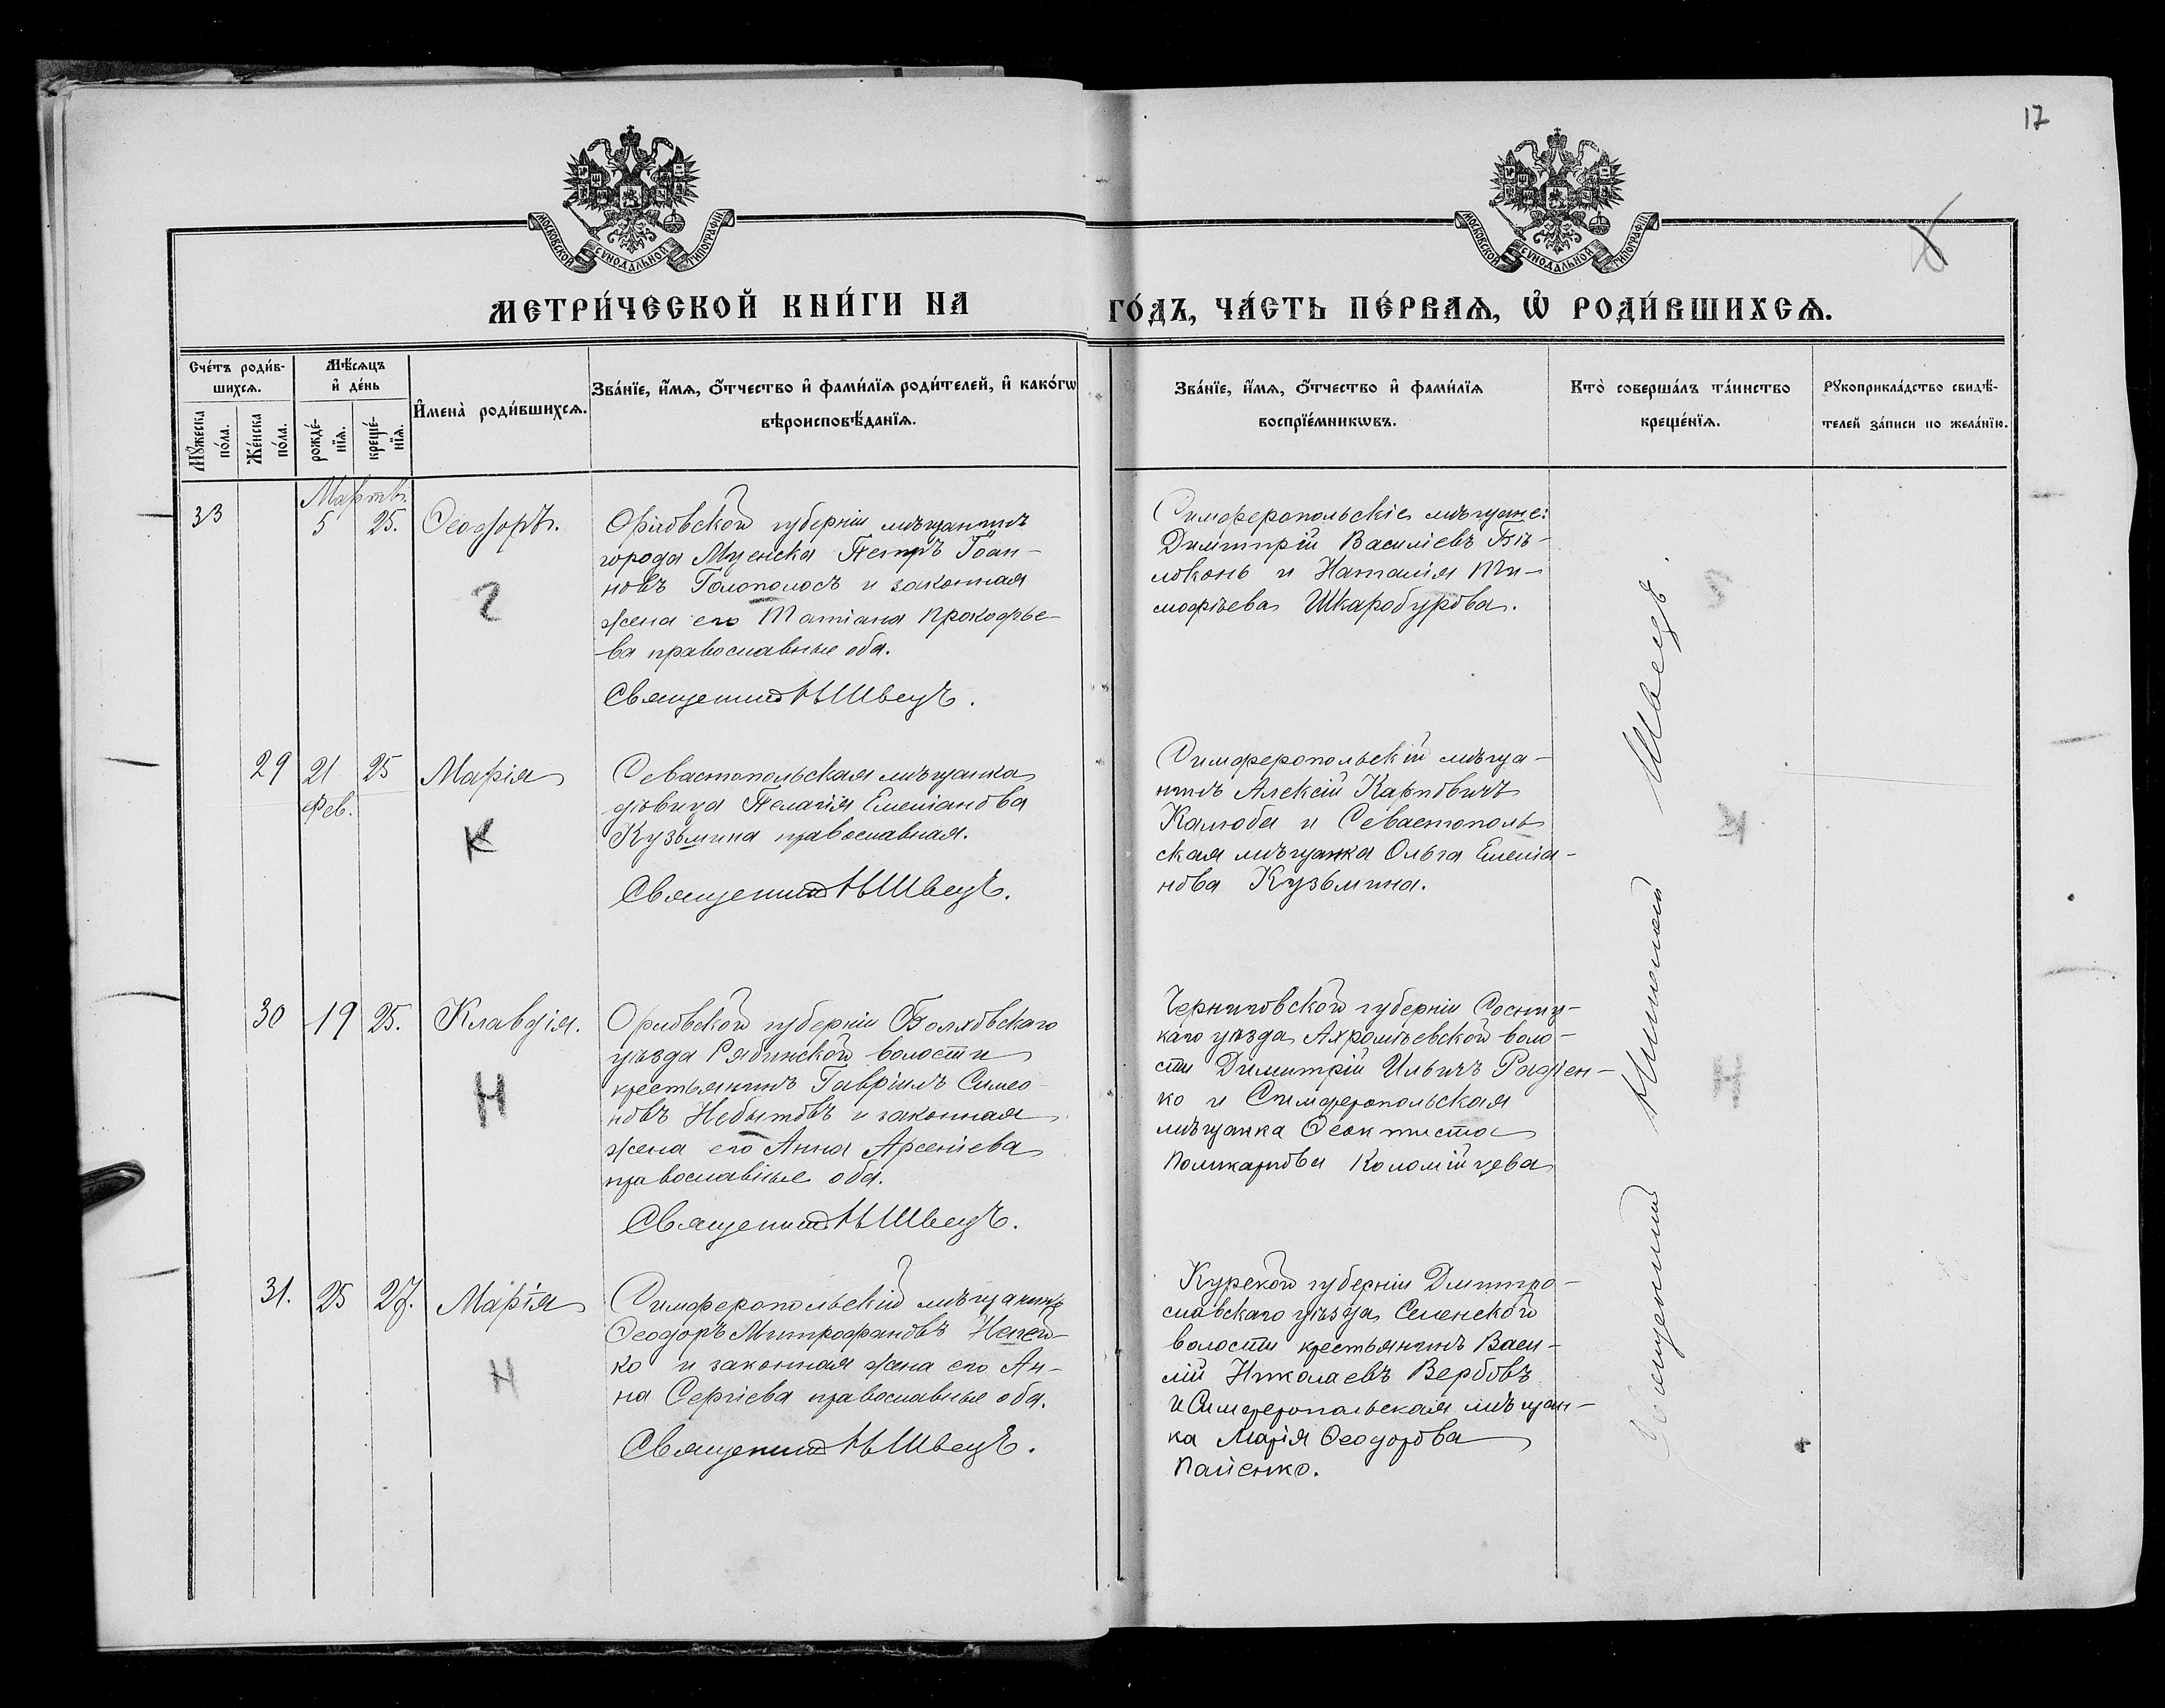 17
МОСКОВСКОЙ СѴНОДАЛЬНОЙ ТИПОГРАФІИ
МОСКОВСКОЙ СѴНОДАЛЬНОЙ ТИПОГРАФІИ
МЕТРИ́ЧЕСКОЙ КНИ́ГИ НА ГО́ДЪ, ЧА́СТЬ ПЕ́РВАѦ, Ѡ҆ РОДИ́ВШИХСѦ.
Сче́тъ роди́в-
шихсѧ.
Мꙋ́жеска
по́ла.
Же́нска
по́ла.
Мѣ́сѧцъ
и҆ де́нь
рожде́-
нїѧ.
креще́-
нїѧ.
И҆мена̀ роди́вшихсѧ.
Зва́нїе, и҆́мѧ, ѻ҆́тчество и҆ фами́лїѧ роди́телей, и҆ како́гѡ
вѣроисповѣ́данїѧ.
Зва́нїе, и҆́мѧ, ѻ҆́тчество и҆ фами́лїѧ
воспрїе́мникѡвъ.
Кто̀ соверша́лъ та́инство
креще́нїѧ.
Рꙋкоприкла́дство свидѣ́-
телей за́писи по жела́нїю.
33
Мартъ.
5 25.
Ѳеодоръ.
Г
Орловской губерніи мѣщанинъ
города Мценска Петръ Іоан-
новъ Голополосъ и законная
жена его Татіана Прокофье-
ва православные оба.
Священник Н Швецъ.
Симферопольскіе мѣщане:
Димитрій Василіевъ Бѣ-
локонь и Наталія Ти-
мофѣева Шкаробурова.
29 21 25
Фев.
Марія
К
Севастопольская мѣщанка
дѣвица Пелагія Емеліанова
Кузьмина православная.
Священник Н Швецъ.
Симферопольскій мѣща-
нинъ Алексій Карповичъ
Калюба и Севастополь
ская мѣщанка Ольга Емеліа-
нова Кузьмина.
30 19 25.
Клавдія.
Н
Орловской губерніи Болховскаго
уѣзда Рябинской волости
крестьянинъ Гавріилъ Симео-
новъ Небытовъ и законная
жена его Анна Арсеніева
православные оба.
Священник Н Швецъ.
Черниговской губерніи Сосниц-
каго уѣзда воло-
сти Димитрій Ильичъ
ко и Симферопольская
мѣщанка Ѳеоктиста
Поликарпова Коломійцева
31. 25 27.
Марія
Н
Симферопольскій мѣщанинъ
Ѳеодоръ Митрофановъ Непей-
ко и законная жена его Ан-
на Сергіева православные оба.
Священник Н Швецъ.
Курской губерніи Дмитро-
славскаго уѣзда Селенской
волости крестьянинъ Васи-
лій Николаевъ Вербовъ
и Симферопольская мѣщан-
ка Марія Ѳеодорова
Священник Николай Швецъ.